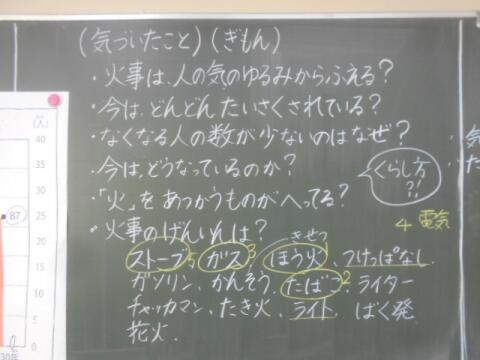 (気づいたこと)(ぎもん)
・火事は、人の気のゆるみからふえる?
・今は、どんどんたいさくされている?
・なくなる人の数が少ないのはなぜ?
・今は、どうなっているのか?
・「火」をあつかうものがへってる?
くらし方?!
・火事のげんいんは?
4 電気
きせつ
ストーブ5、ガス3、ほう火1、つけっぱなし、
ガソリン、かんそう、たばこ2、ライター
チャッカマン、たき火、ライト、ばく発
花火、
(人)
40
35
30
87
25
20
15
10
5
0
30年
気
た